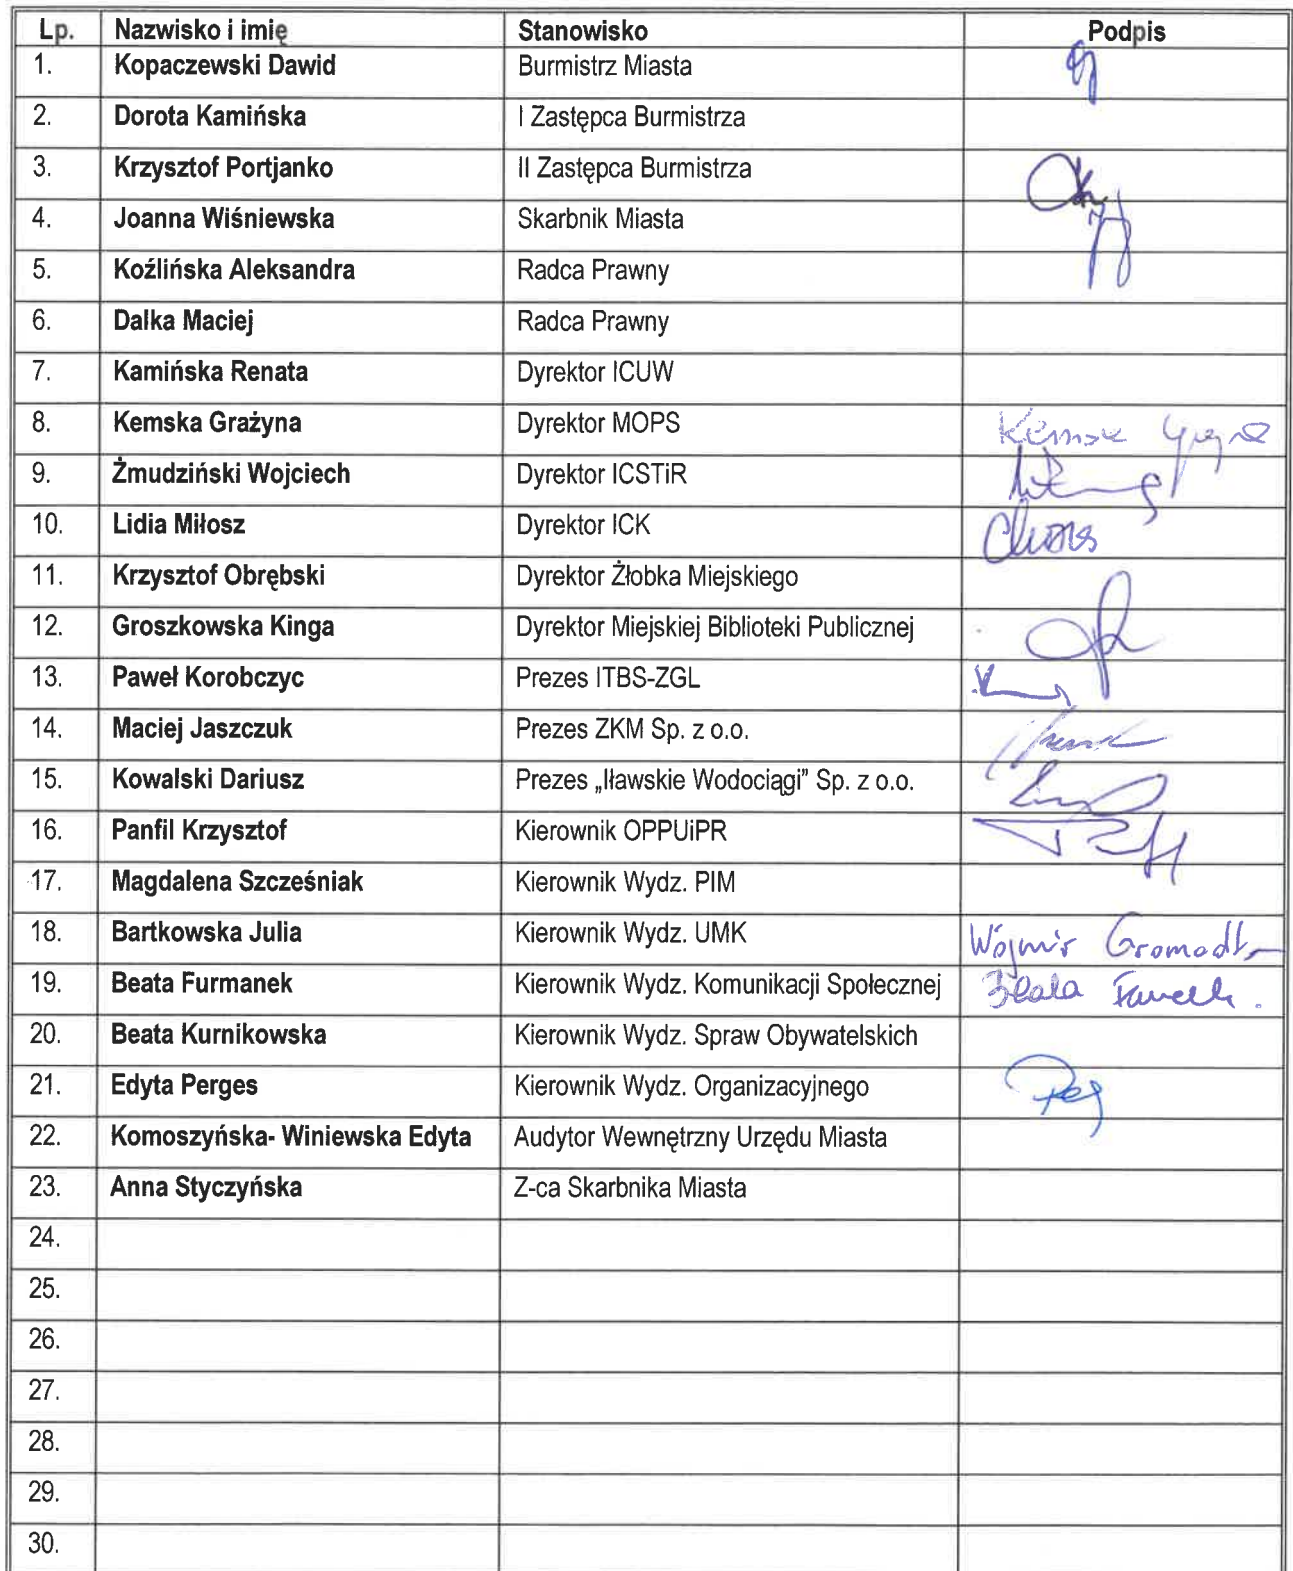 Lp. Nazwisko i imię Stanowisko Podpis
1. Kopaczewski Dawid Burmistrz Miasta
2. Dorota Kamińska I Zastępca Burmistrza
3. Krzysztof Portjanko II Zastępca Burmistrza
4. Joanna Wiśniewska Skarbnik Miasta
5. Koźlińska Aleksandra Radca Prawny
6. Dalka Maciej Radca Prawny
7. Kamińska Renata Dyrektor ICUW
8. Kemska Grażyna Dyrektor MOPS
9. Żmudziński Wojciech Dyrektor ICSTiR
10. Lidia Miłosz Dyrektor ICK
11. Krzysztof Obrębski Dyrektor Żłobka Miejskiego
12. Groszkowska Kinga Dyrektor Miejskiej Biblioteki Publicznej
13. Paweł Korobczyc Prezes ITBS-ZGL
14. Maciej Jaszczuk Prezes ZKM Sp. z o.o.
15. Kowalski Dariusz Prezes „Iławskie Wodociągi” Sp. z o.o.
16. Panfil Krzysztof Kierownik OPPUiPR
17. Magdalena Szcześniak Kierownik Wydz. PIM
18. Bartkowska Julia Kierownik Wydz. UMK
19. Beata Furmanek Kierownik Wydz. Komunikacji Społecznej Beata
20. Beata Kurnikowska Kierownik Wydz. Spraw Obywatelskich
21. Edyta Perges Kierownik Wydz. Organizacyjnego
22. Komoszyńska- Winiewska Edyta Audytor Wewnętrzny Urzędu Miasta
23. Anna Styczyńska Z-ca Skarbnika Miasta
24.
25.
26.
27.
28.
29.
30.